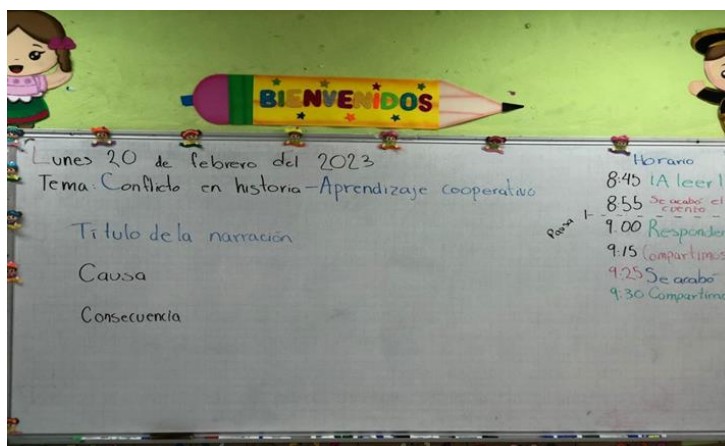 BIENVENIDOS
Lunes 20 de febrero del 2023
Tema: Conflicto en historia - Aprendizaje cooperativo
Título de la narración
Causa
Consecuencia
Horario
8:45 ¡A leer!
8:55 Se acabó el cuento
Pausa
9:00 Responder
9:15 Compartimos
9:25 Se acabó
9:30 Compartimo